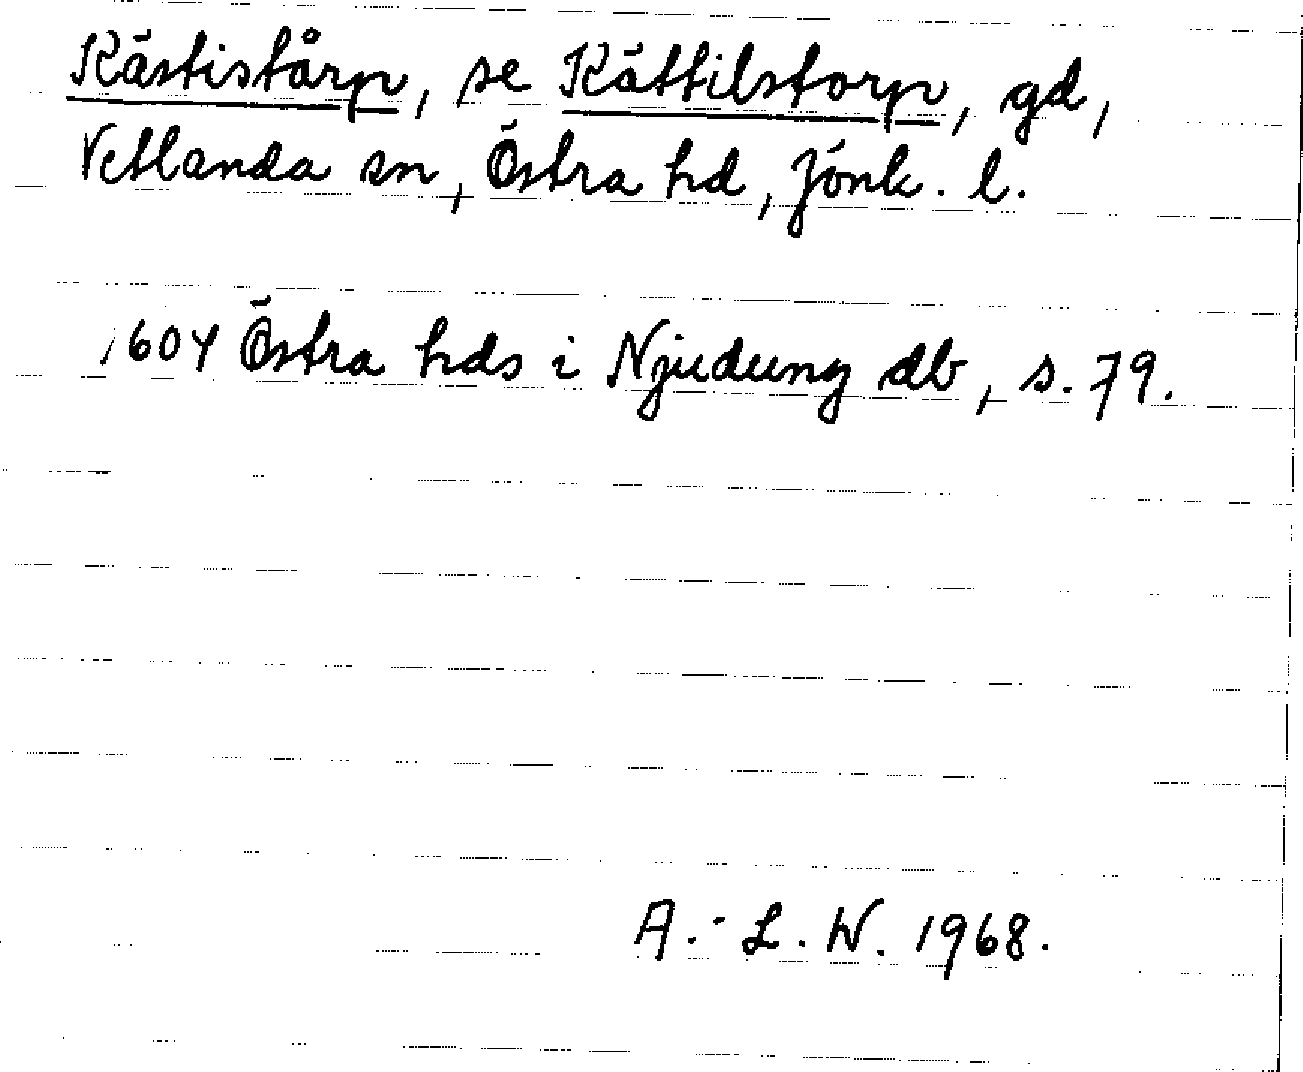 Kästistårp, se Kättilstorp, gd,
Vetlanda sn, Östra hd, Jönk. l.
1604 Östra hds i Njudung db, s. 79.
A.-L. W. 1968.